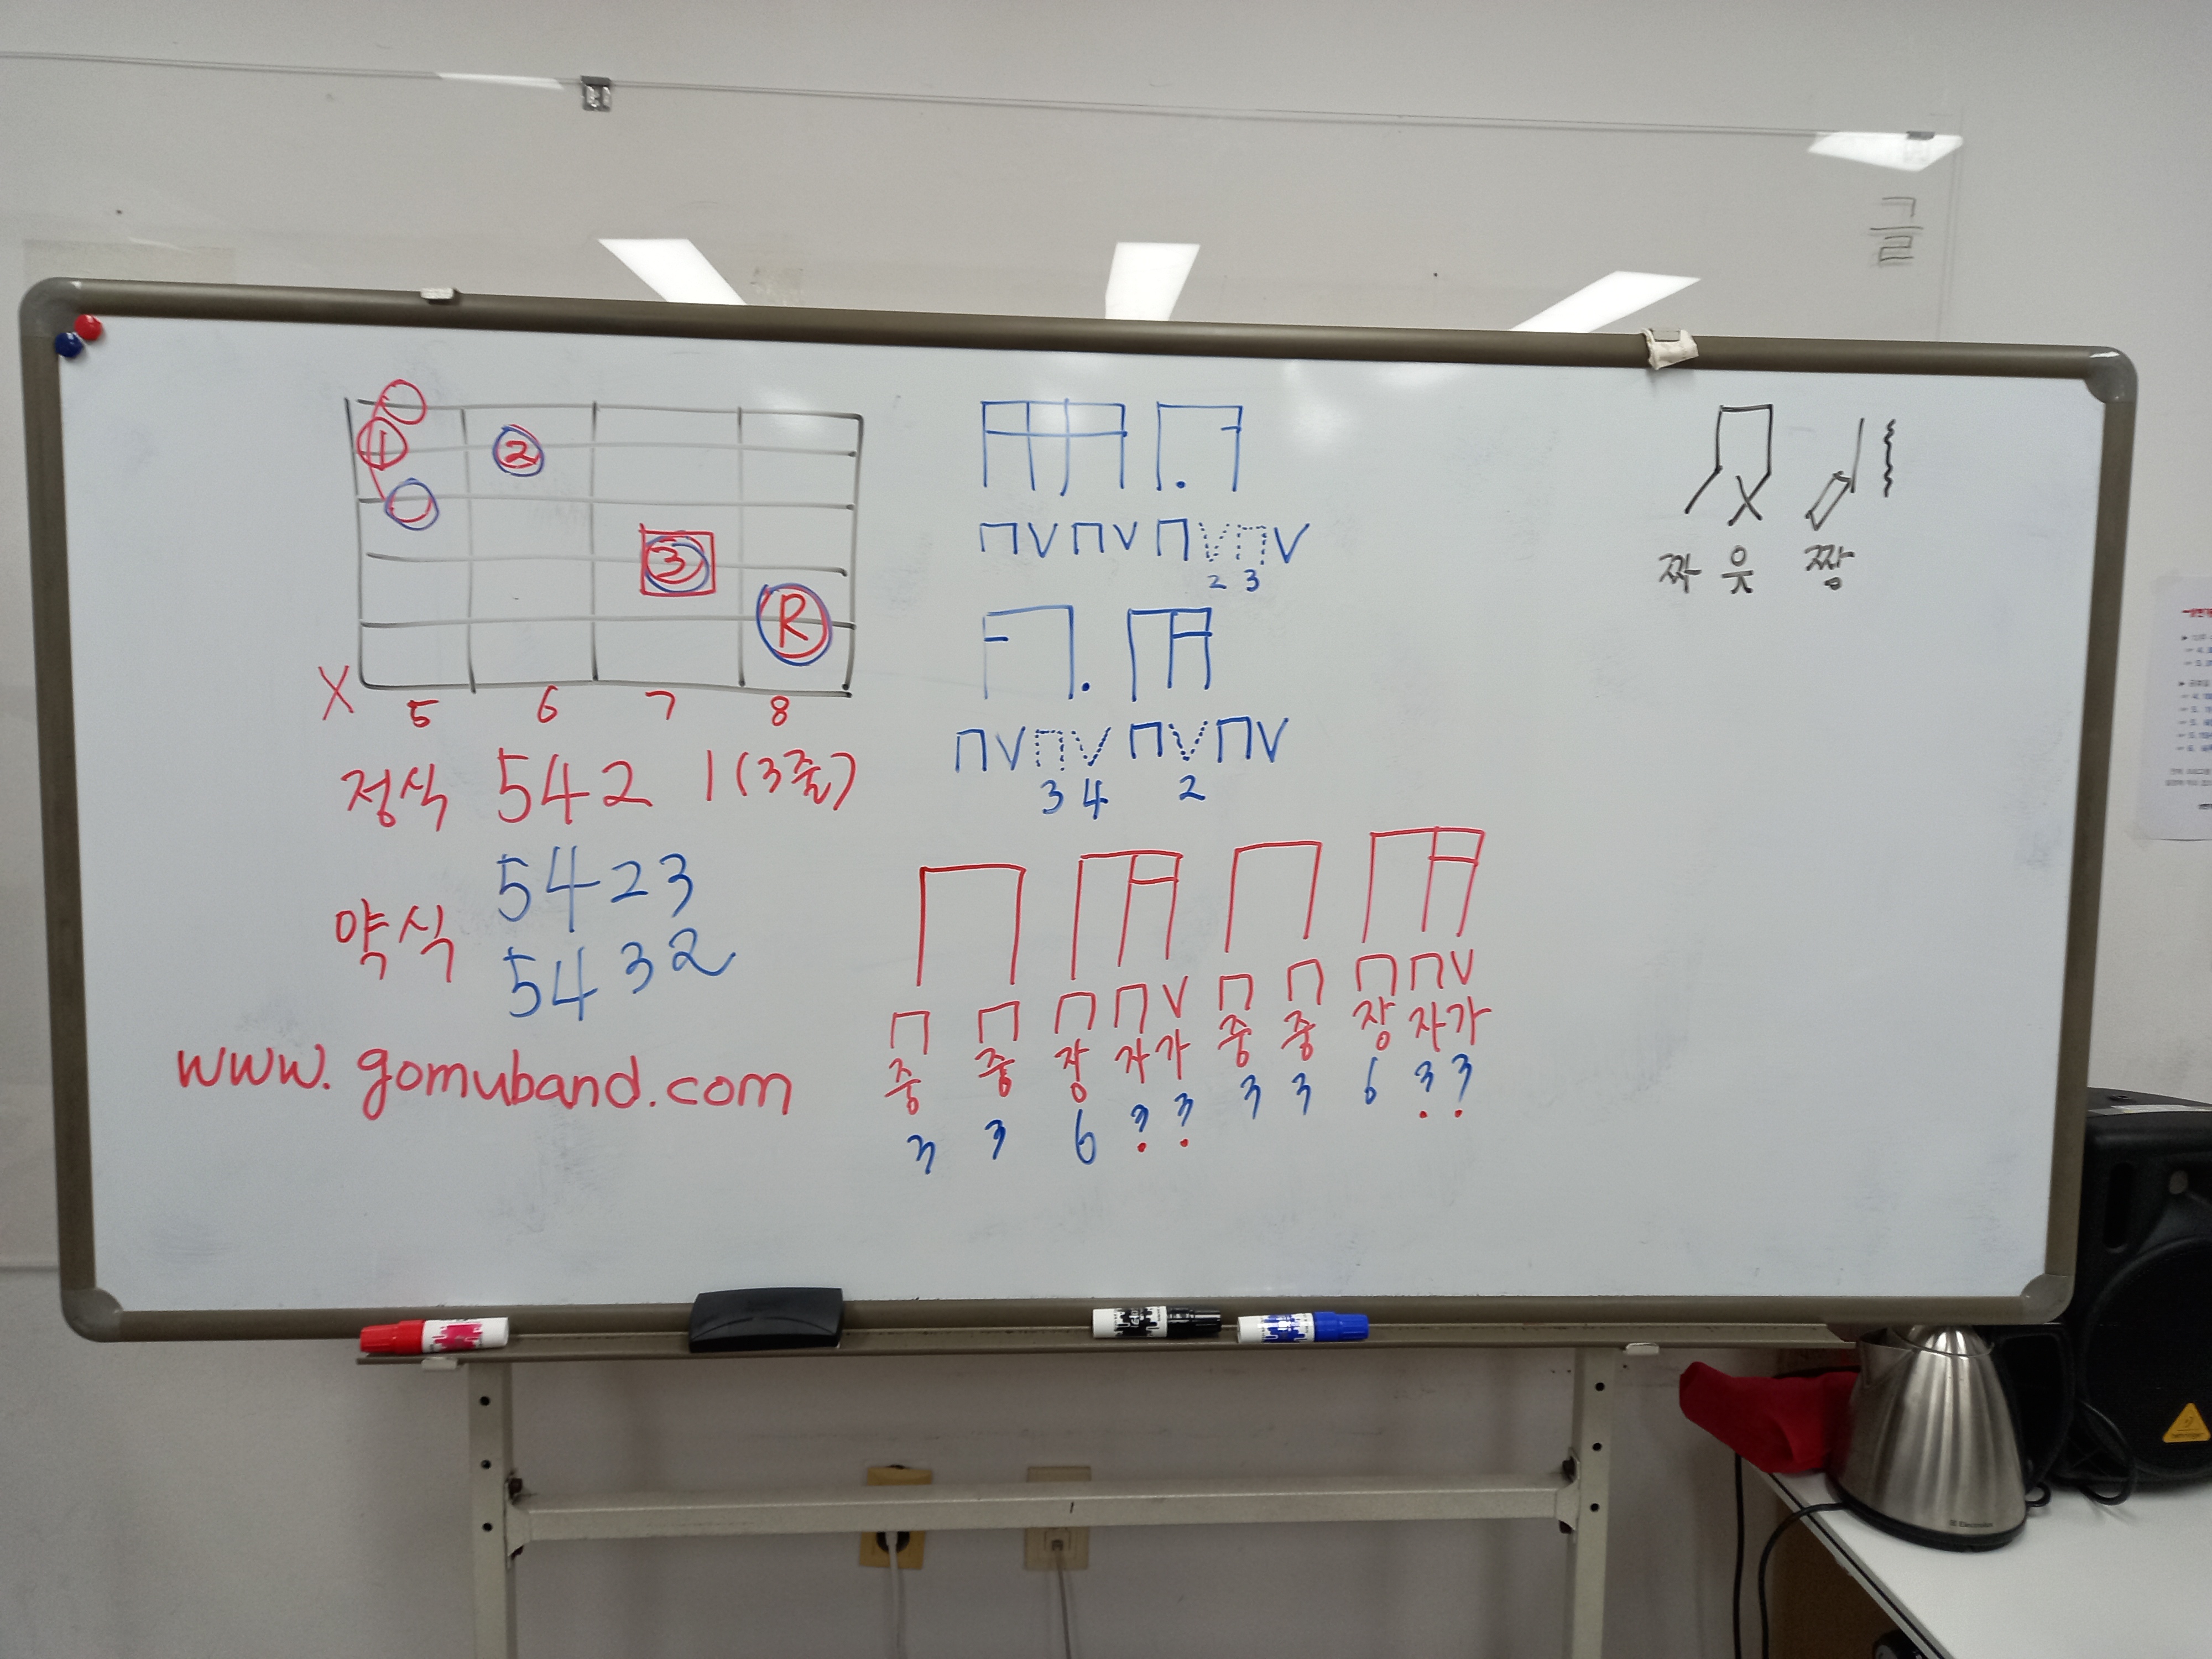 글
1
2
3
R
X 5 6 7 8
정식 542 1(3줄)
약식 5423
5432
www.gomuband.com
ㄇVㄇVㄇVㄇV
2 3
ㄇVㄇVㄇVㄇV
3 4 2
ㄇ ㄇ ㄇㄇV ㄇ ㄇ ㄇㄇV
중 중 장 자가 중 중 장 자가
3 3 6 ? ? 3 3 6 ? ?
X
짜 읏 짱
Electrolux
behringer